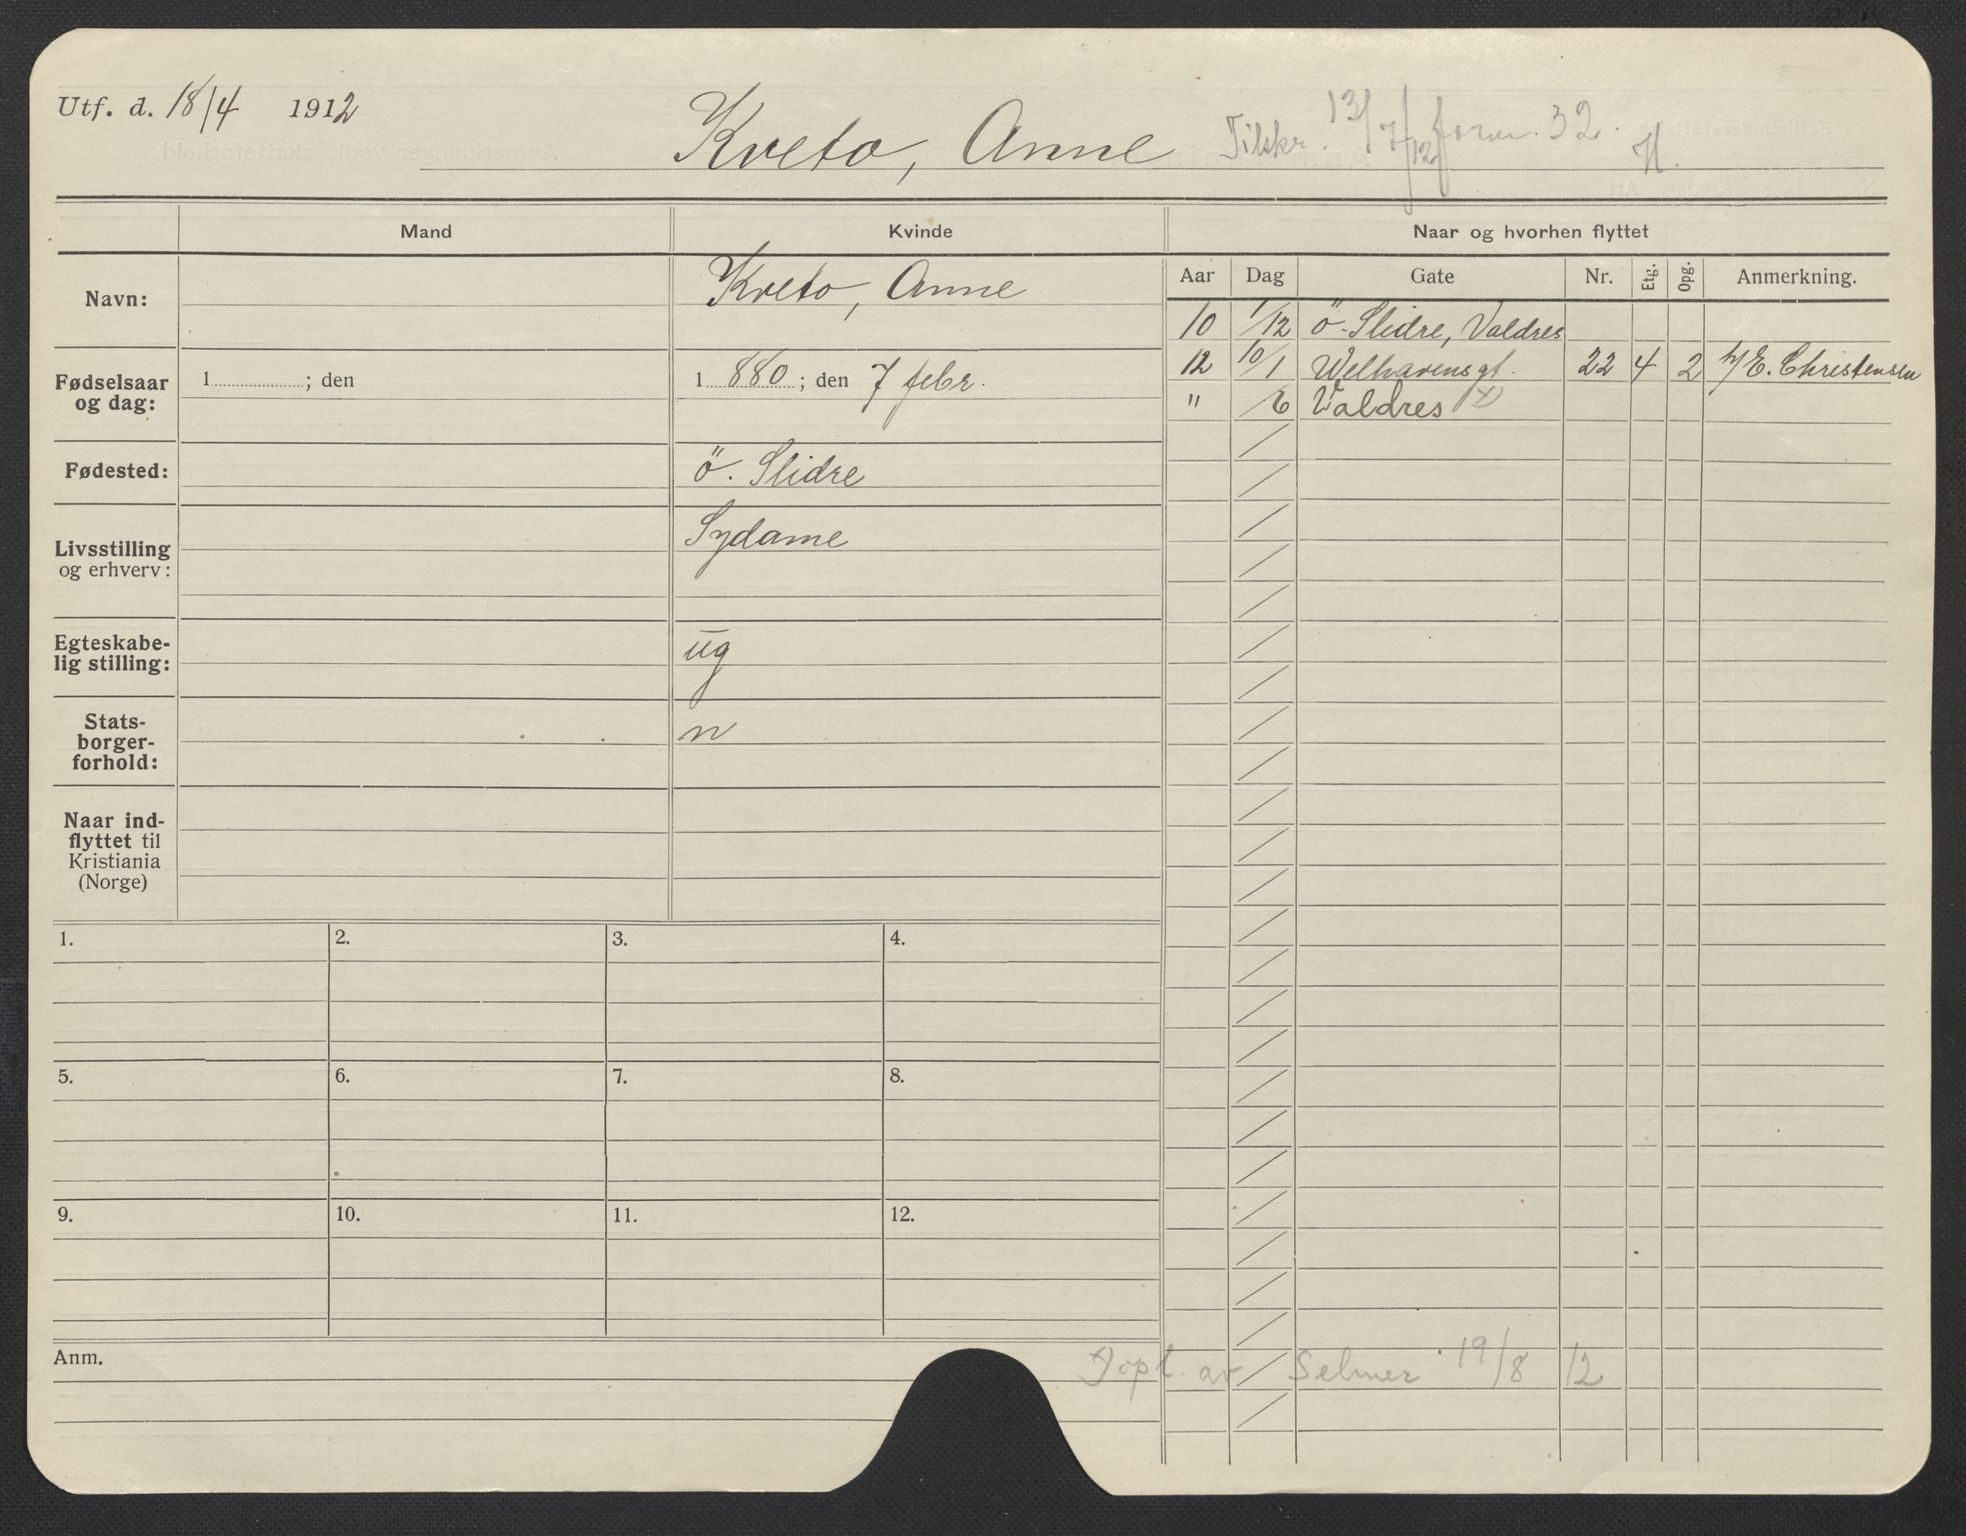 Utf. d. 18/4 1912
Kveto, Anne Tilskr. 13/7 12 form. 32. H.
Mand Kvinde Naar og hvorhen flyttet
Aar Dag Gate Nr. Etg. Opg. Anmerkning.
Navn: Kveto, Anne
10 1/12 Ö. Slidre, Valdres
12 10/1 Welhavensgt. 22 4 2 h/E. Christensen
" /6 Valdres x)
Fødselsaar og dag: 1 ; den 1 880 ; den 7 febr.
Fødested: Ö. Slidre
Livsstilling og erhverv: Sydame
Egteskabe-
lig stilling: ug
Stats-
borger-
forhold: n
Naar ind-
flyttet til
Kristiania
(Norge)
1. 2. 3. 4.
5. 6. 7. 8.
9. 10. 11. 12.
Anm.
x) opl. av Selmer 19/8 12